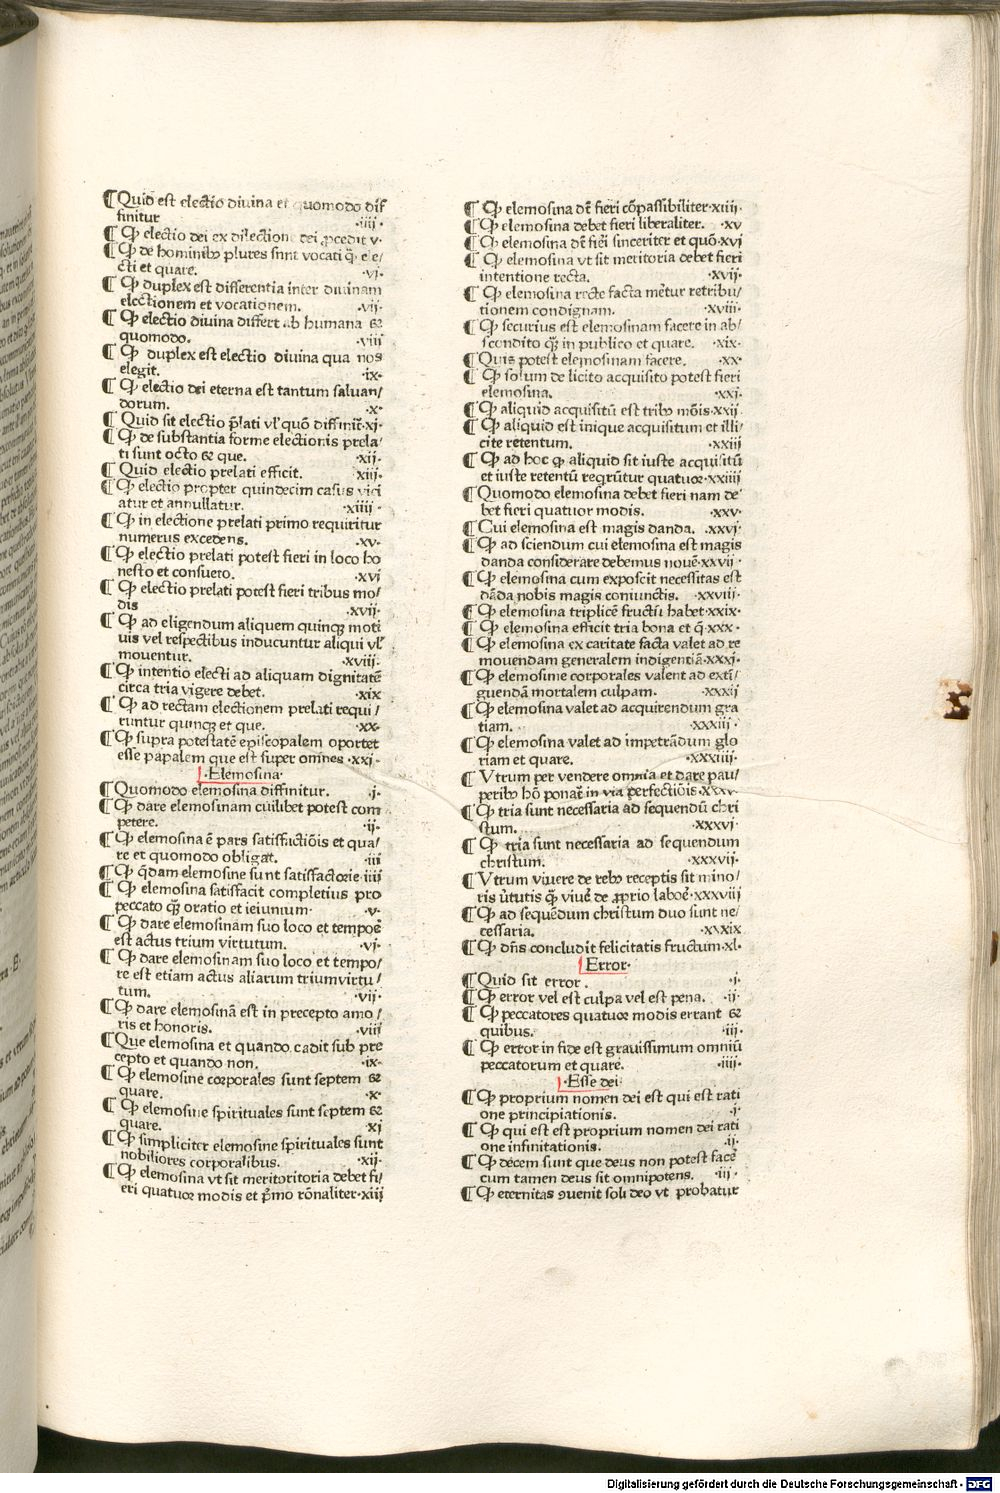 ¶ Quid est electio diuina et quomodo dif
finitur ·iiij·
¶ Ꝙ electio dei ex dilectione dei ꝓcedit v·
¶ Ꝙ de hominibꝰ plures sunt vocati q̄ ele/
cti et quare. ·vj·
¶ Ꝙ duplex est differentia inter diuinam
electionem et vocationem. ·vij·
¶ Ꝙ electio diuina differt ab humana ⁊
quomodo. ·viij
¶ Ꝙ duplex est electio diuina qua nos
elegit. ·ix·
¶ Ꝙ electio dei eterna est tantum saluan/
dorum. ·x·
¶ Quid sit electio p̄lati vl' quō diffinit̄·xj·
¶ Ꝙ de substantia forme electionis prela/
ti sunt octo ⁊ que. ·xij·
¶ Quid electio prelati efficit. xiij·
¶ Ꝙ electio propter quindecim casus vici
atur et annullatur. ·xiiij·
¶ Ꝙ in electione prelati primo requiritur
numerus excedens. ·xv·
¶ Ꝙ electio prelati potest fieri in loco ho
nesto et consueto. ·xvj
¶ Ꝙ electio prelati potest fieri tribus mo/
dis ·xvij·
¶ Ꝙ ad eligendum aliquem quinqꝫ moti
uis vel respectibus inducuntur aliqui vl'
mouentur. ·xviij·
¶ Ꝙ intentio electi ad aliquam dignitatē
circa tria vigere debet. ·xix
¶ Ꝙ ad rectam electionem prelati requi/
runtur quinqꝫ et que. ·xx·
¶ Ꝙ supra potestatē episcopalem oportet
esse papalem que est super omnes ·xxj·
·Elemosina·
¶ Quomodo elemosina diffinitur. ·j·
¶ Ꝙ dare elemosinam cuilibet potest com
petere. ·ij·
¶ Ꝙ elemosina ē pars satisfactiōis et qua/
re et quomodo obligat. ·iij
¶ Ꝙ q̄dam elemosine sunt satisfactorie·iiij
¶ Ꝙ elemosina satisfacit completius pro
peccato qꝫ oratio et ieiunium· ·v·
¶ Ꝙ dare elemosinam suo loco et tempoē
est actus trium virtutum. ·vj·
¶ Ꝙ dare elemosinam suo loco et tempo/
re est etiam actus aliarum triumvirtu/
tum. ·vij·
¶ Ꝙ dare elemosinā est in precepto amo/
ris et honoris. ·viij
¶ Que elemosina et quando cadit sub pre
cepto et quando non. ·ix·
¶ Ꝙ elemosine corporales sunt septem ⁊
quare. ·x·
¶ Ꝙ elemosine spirituales sunt septem ⁊
quare. xj
¶ Ꝙ simpliciter elemosine spirituales sunt
nobiliores corporalibus. ·xij·
¶ Ꝙ elemosina vt sit meritoritoria debet fi/
eri quatuor modis et p̄mo rōnaliter·xiij
¶ Ꝙ elemosina dꝫ fieri cōpassibiliter·xiiij·
¶ Ꝙ elemosina debet fieri liberaliter. ·xv
¶ Ꝙ elemosina dꝫ fieri sinceriter et quō·xvj
¶ Ꝙ elemosina vt sit meritoria debet fieri
intentione recta. ·xvij·
¶ Ꝙ elemosina recte facta mēetur retribu/
tionem condignam. ·xviij·
¶ Ꝙ securius est elemosinam facere in ab/
scondito qꝫ in publico et quare. ·xix·
¶ Quis potest elemosinam facere. ·xx·
¶ Ꝙ solum de licito acquisito potest fieri
elemosina. ·xxj·
¶ Ꝙ aliquid acquisitū est tribꝰ mōis·xxij
¶ Ꝙ aliquid est inique acquisitum et illi/
cite retentum. ·xxiij
¶ Ꝙ ad hoc ꝙ aliquid sit iuste acquisitū
et iuste retentū reqrūtur quatuor·xxiiij
¶ Quomodo elemosina debet fieri nam de/
bet fieri quatuor modis. ·xxv·
¶ Cui elemosina est magis danda. ·xxvj·
¶ Ꝙ ad sciendum cui elemosina est magis
danda considerare debemus nouē·xxvij·
¶ Ꝙ elemosina cum exposcit necessitas est
dāda nobis magis coniunctis. ·xxviij·
¶ Ꝙ elemosina triplicē fructū habet·xxix·
¶ Ꝙ elemosina efficit tria bona et q̄·xxx·
¶ Ꝙ elemosina ex caritate facta valet ad re
mouendam generalem indigentiā·xxxj·
¶ Ꝙ elemosine corporales valent ad extī/
guendā mortalem culpam. ·xxxij
¶ Ꝙ elemosina valet ad acquirendum gra
tiam. ·xxxiij·
¶ Ꝙ elemosina valet ad impetrādum glo
riam et quare. ·xxxiiij·
¶ Vtrum per vendere omnia et dare pau/
peribꝰ hō ponat̄ in via perfectiōis·xxxv·
¶ Ꝙ tria sunt necessaria ad sequendū chri
stum. ·xxxvj·
¶ Ꝙ tria sunt necessaria ad sequendum
christum. ·xxxvij·
¶ Vtrum viuere de rebꝰ receptis sit mino/
ris v̄tutis qꝫ viuē de ꝓprio laboē·xxxviij
¶ Ꝙ ad sequēdum christum duo sunt ne/
cessaria. ·xxxix
¶ Ꝙ dn̄s concludit felicitatis fructum·xl·
·Error·
¶ Quid sit error. ·j·
¶ Ꝙ error vel est culpa vel est pena. ·ij·
¶ Ꝙ peccatores quatuor modis errant ⁊
quibus. ·iij·
¶ Ꝙ error in fide est grauissimum omniū
peccatorum et quare. ·iiij·
·Esse dei·
¶ Ꝙ proprium nomen dei est qui est rati
one principiationis. ·j·
¶ Ꝙ qui est est proprium nomen dei rati
one infinitationis. ·ij·
¶ Ꝙ decem sunt que deus non potest facē
cum tamen deus sit omnipotens. ·iij·
¶ Ꝙ eternitas ꝯuenit soli deo vt probatur
Digitalisierung gefördert durch die Deutsche Forschungsgemeinschaft · DFG